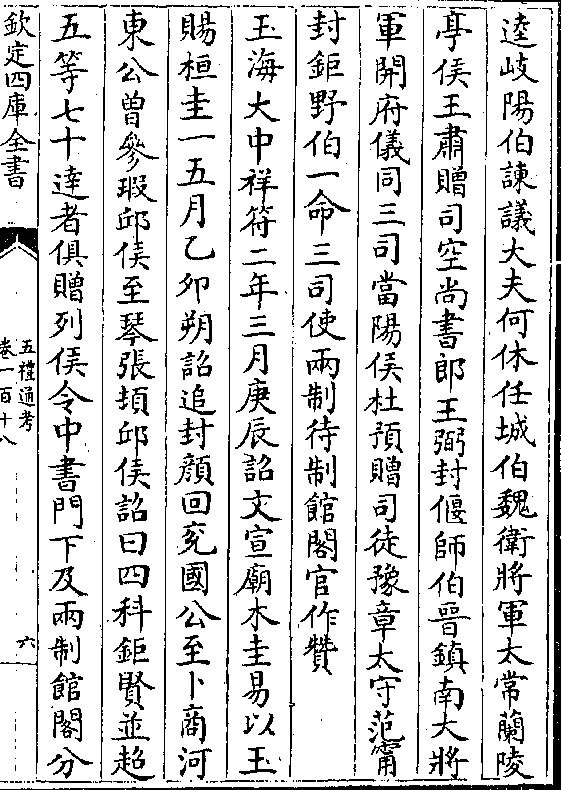 逵岐陽伯諫議大夫何休任城伯魏衛將軍太常蘭陵
亭侯王肅贈司空尚書郎王弼封偃師伯晉鎮南大將
軍開府儀同三司當陽侯杜預贈司徒豫章太守范甯
封鉅野伯一命三司使兩制待制館閣官作贊
玉海大中祥符二年三月庚辰詔文宣廟木圭易以玉
賜桓圭一五月乙卯朔詔追封顔回兖國公至卜商河
東公曾參瑕邱侯至琴張頓邱侯詔曰四科鉅賢並超
五等七十逹者俱贈列侯令中書門下及兩制館閣分
欽定四庫全書
五禮通考
卷一百十八
六